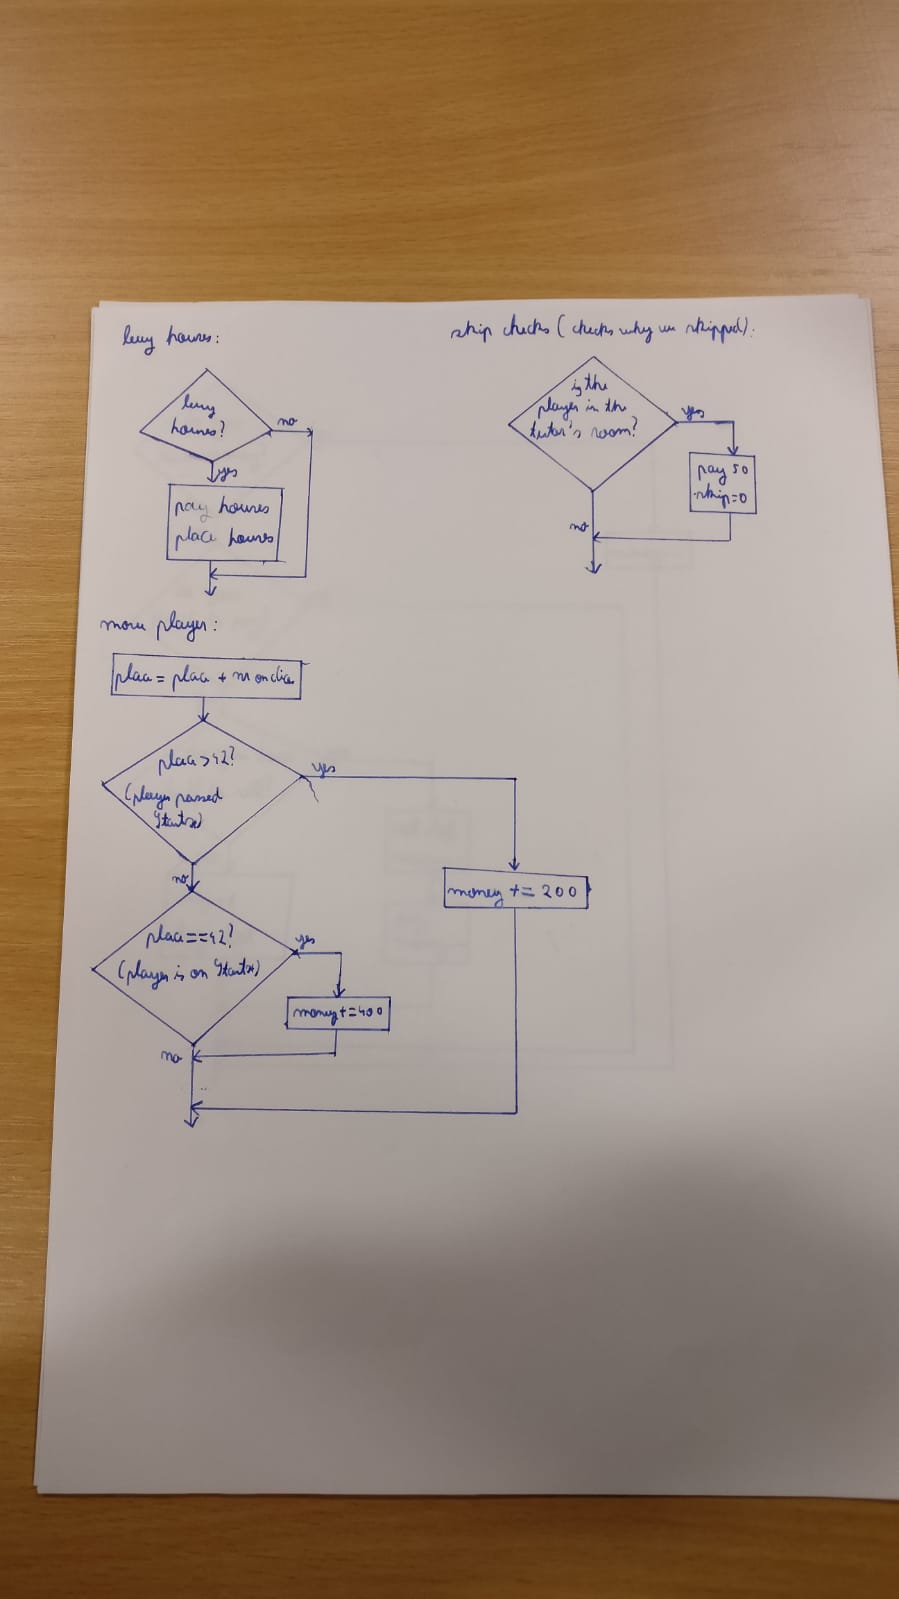 buy houses:
buy
houses?
no
yes
pay houses
place houses
skip checks (checks why we skipped):
is the
player in the
tutor's room?
yes
pay 50
skip=0
no
move player:
place = place + nr on dice
place>42?
(player passed
yes
no
money += 200
place==42?
(player is on
yes
money+=400
no